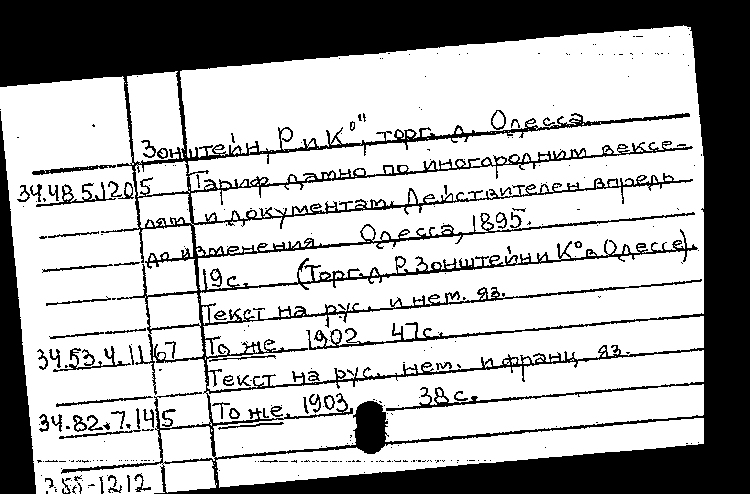 Зонштейн, Р и К°", торг. д. Одесса.
34.48.5.120 5 Тариф дамно по иногородним вексе-
лям и документам. Действителен впредь
до изменения. Одесса, 1895.
19с. (Торг. д. Р. Зонштейн и К° в Одессе).
Текст на рус. и нем. яз.
34.53.4.11 67 То же. 1902. 47с.
Текст на рус., нем. и франц. яз.
34.82.7.14 5 То же. 1903. 38с.